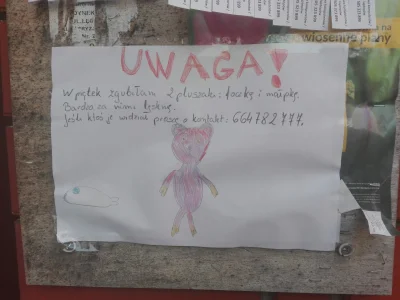 UWAGA!
W piątek zgubiłam 2 pluszaki: foczkę i małpkę.
Bardzo za nimi tęsknię.
Jeśli ktoś je widział proszę o kontakt: 664782777.
wiosenne plany